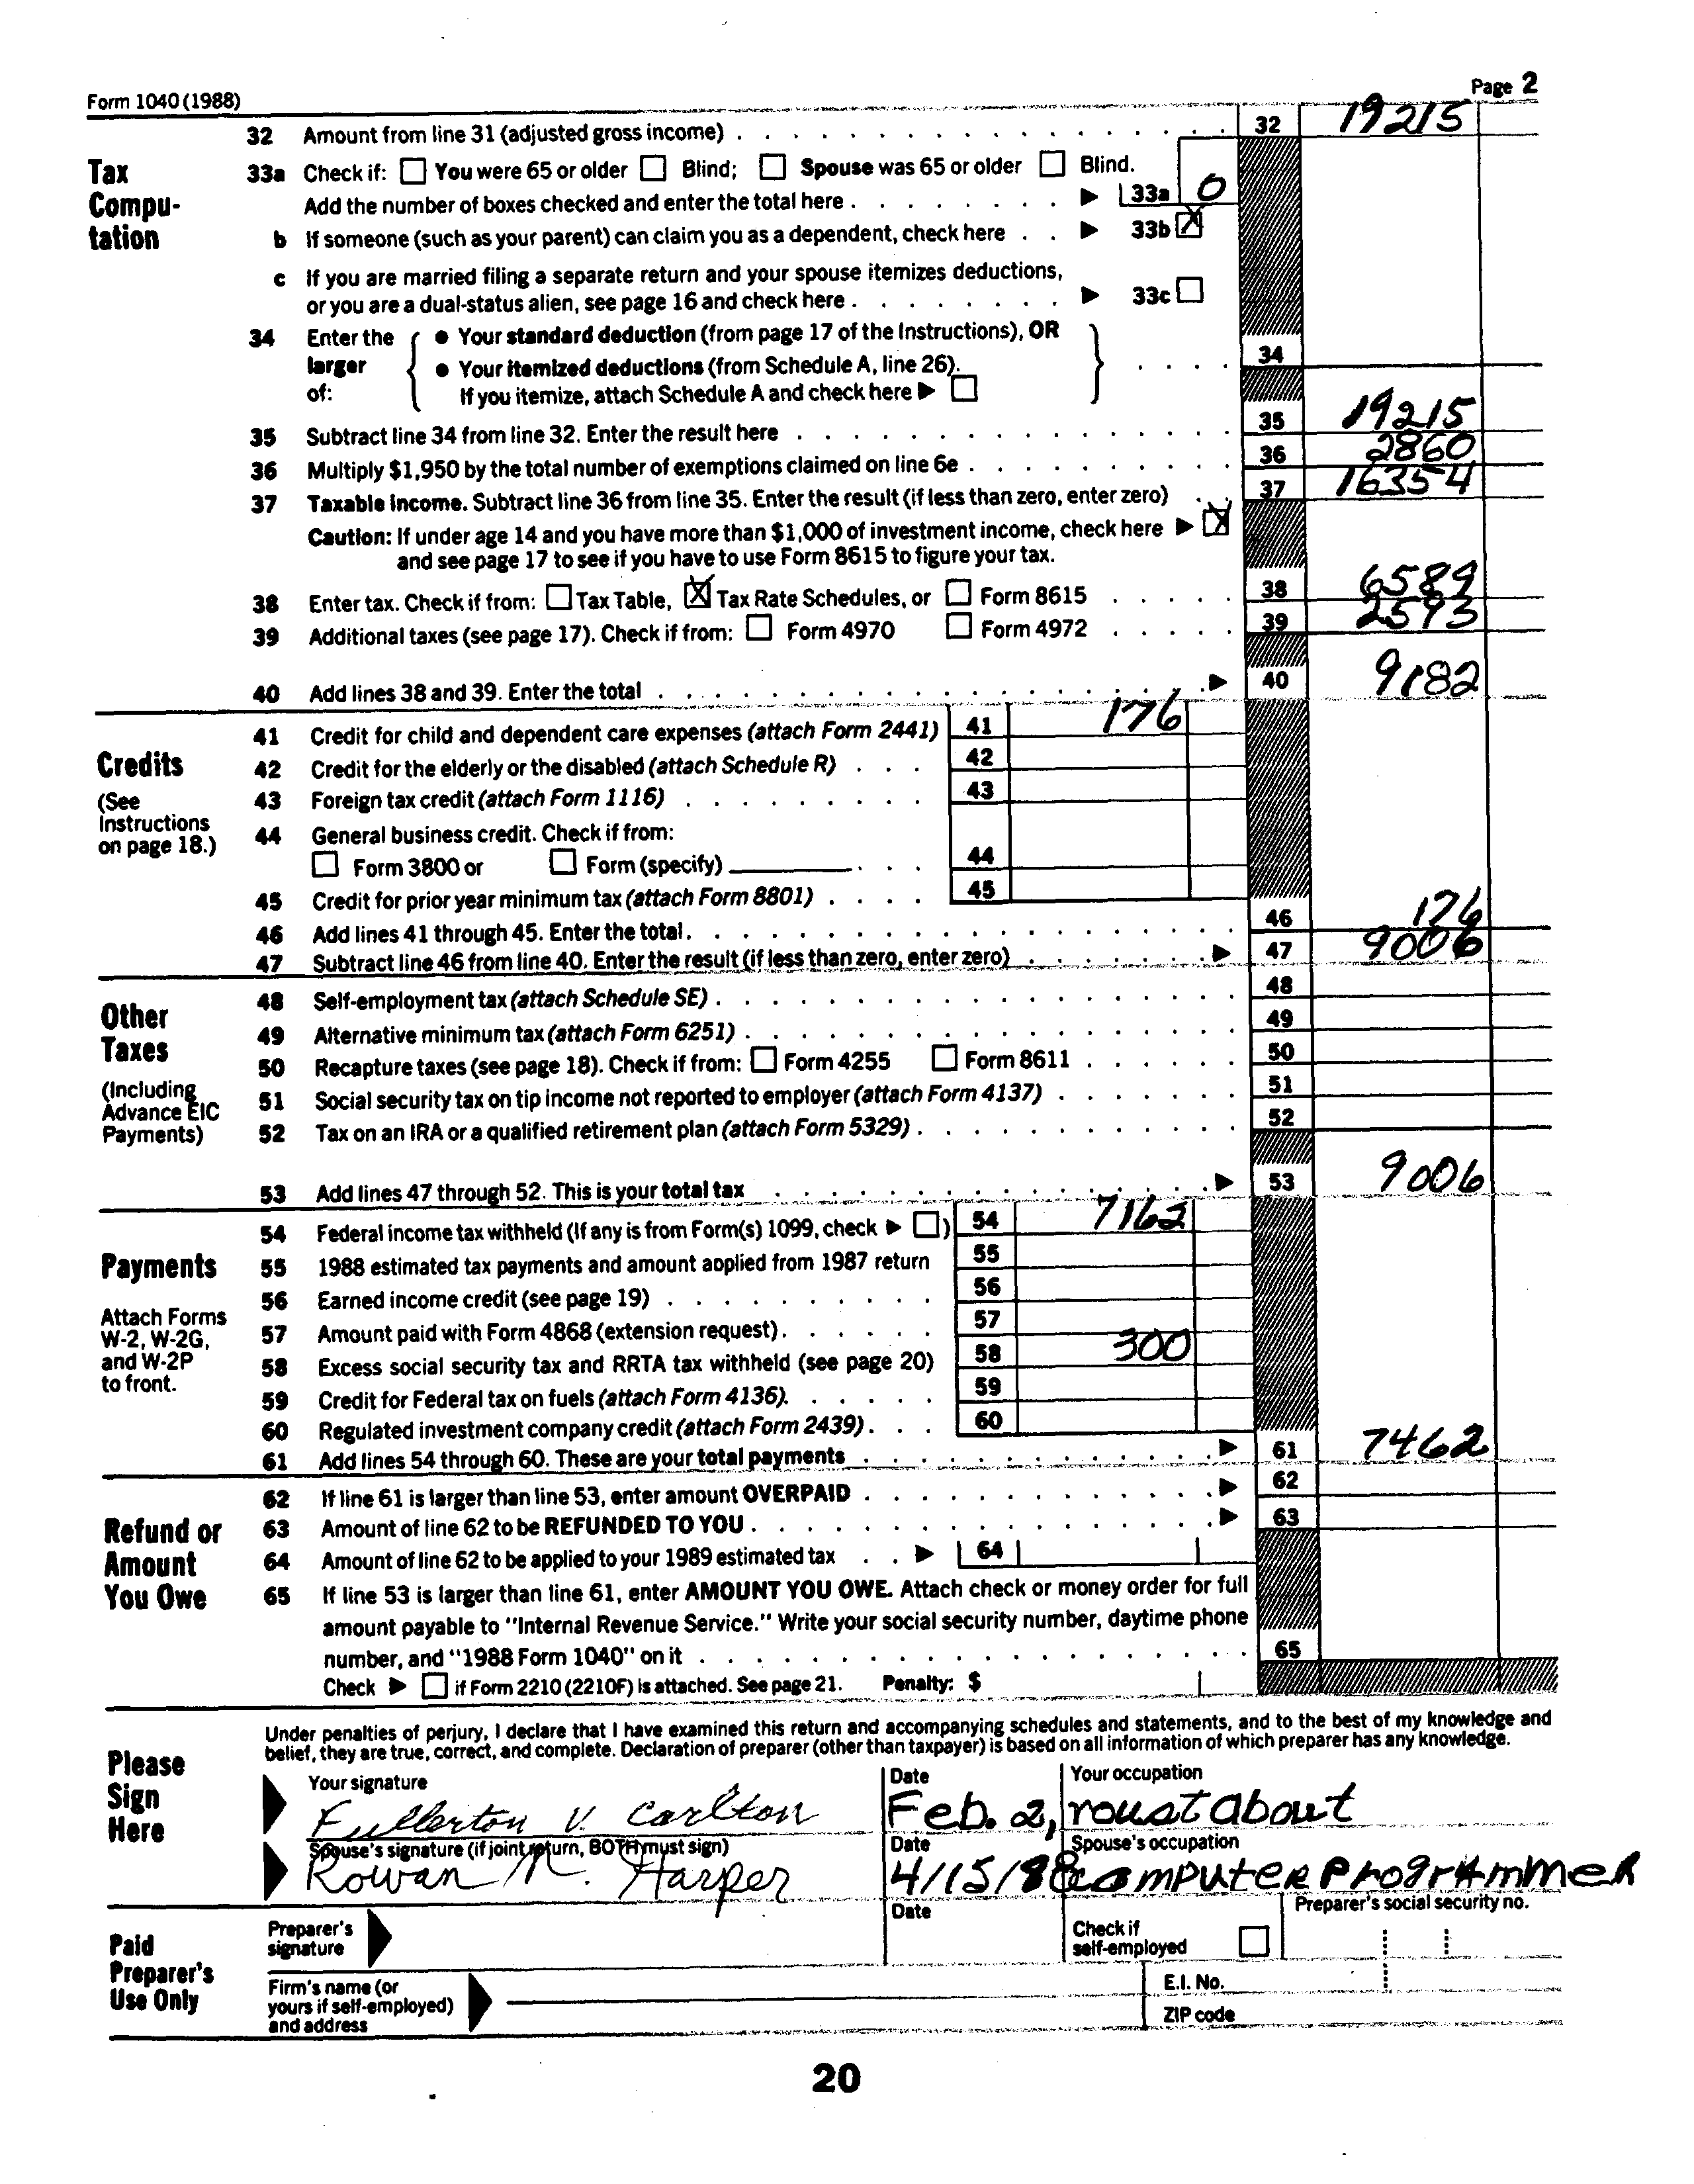 Form 1040 (1988) Page 2
Tax Computation
32 Amount from line 31 (adjusted gross income) . . . 32 19215
33a Check if: ☐ You were 65 or older ☐ Blind; ☐ Spouse was 65 or older ☐ Blind.
Add the number of boxes checked and enter the total here . . . ▶ 33a 0
b If someone (such as your parent) can claim you as a dependent, check here . . ▶ 33b ☒
c If you are married filing a separate return and your spouse itemizes deductions,
or you are a dual-status alien, see page 16 and check here . . . ▶ 33c ☐
34 Enter the larger of: { ● Your standard deduction (from page 17 of the Instructions), OR
● Your itemized deductions (from Schedule A, line 26).
If you itemize, attach Schedule A and check here ▶ ☐ } . . . . 34
35 Subtract line 34 from line 32. Enter the result here . . . 35 19215
36 Multiply $1,950 by the total number of exemptions claimed on line 6e . . . 36 2860
37 Taxable income. Subtract line 36 from line 35. Enter the result (if less than zero, enter zero) . . 37 16354
Caution: If under age 14 and you have more than $1,000 of investment income, check here ▶ ☒
and see page 17 to see if you have to use Form 8615 to figure your tax.
38 Enter tax. Check if from: ☐ Tax Table, ☒ Tax Rate Schedules, or ☐ Form 8615 . . . 38 6589
39 Additional taxes (see page 17). Check if from: ☐ Form 4970 ☐ Form 4972 . . . 39 2593
40 Add lines 38 and 39. Enter the total . . . ▶ 40 9182
Credits
(See Instructions on page 18.)
41 Credit for child and dependent care expenses (attach Form 2441) 41 176
42 Credit for the elderly or the disabled (attach Schedule R) . . . 42
43 Foreign tax credit (attach Form 1116) . . . 43
44 General business credit. Check if from:
☐ Form 3800 or ☐ Form (specify) . . . 44
45 Credit for prior year minimum tax (attach Form 8801) . . . . 45
46 Add lines 41 through 45. Enter the total . . . 46 176
47 Subtract line 46 from line 40. Enter the result (if less than zero, enter zero) . . . ▶ 47 9006
Other Taxes
(Including Advance EIC Payments)
48 Self-employment tax (attach Schedule SE) . . . 48
49 Alternative minimum tax (attach Form 6251) . . . 49
50 Recapture taxes (see page 18). Check if from: ☐ Form 4255 ☐ Form 8611 . . . 50
51 Social security tax on tip income not reported to employer (attach Form 4137) . . . 51
52 Tax on an IRA or a qualified retirement plan (attach Form 5329) . . . 52
53 Add lines 47 through 52. This is your total tax . . . ▶ 53 9006
Payments
Attach Forms W-2, W-2G, and W-2P to front.
54 Federal income tax withheld (If any is from Form(s) 1099, check ▶ ☐) 54 7162
55 1988 estimated tax payments and amount applied from 1987 return 55
56 Earned income credit (see page 19) . . . 56
57 Amount paid with Form 4868 (extension request) . . . 57
58 Excess social security tax and RRTA tax withheld (see page 20) 58 300
59 Credit for Federal tax on fuels (attach Form 4136). . . . 59
60 Regulated investment company credit (attach Form 2439) . . . 60
61 Add lines 54 through 60. These are your total payments . . . ▶ 61 7462
Refund or Amount You Owe
62 If line 61 is larger than line 53, enter amount OVERPAID . . . ▶ 62
63 Amount of line 62 to be REFUNDED TO YOU . . . ▶ 63
64 Amount of line 62 to be applied to your 1989 estimated tax . . ▶ 64
65 If line 53 is larger than line 61, enter AMOUNT YOU OWE. Attach check or money order for full
amount payable to "Internal Revenue Service." Write your social security number, daytime phone
number, and "1988 Form 1040" on it . . . 65
Check ▶ ☐ if Form 2210 (2210F) is attached. See page 21. Penalty: $
Please Sign Here
Under penalties of perjury, I declare that I have examined this return and accompanying schedules and statements, and to the best of my knowledge and
belief, they are true, correct, and complete. Declaration of preparer (other than taxpayer) is based on all information of which preparer has any knowledge.
Your signature Date Your occupation
Fullerton V. Carlton Feb. 2, roustabout
Spouse's signature (if joint return, BOTH must sign) Date Spouse's occupation
Rowan M. Harper 4/15/88 computer programmer
Paid Preparer's Use Only
Preparer's signature Date Check if self-employed ☐ Preparer's social security no.
Firm's name (or yours if self-employed) and address E.I. No.
ZIP code
20